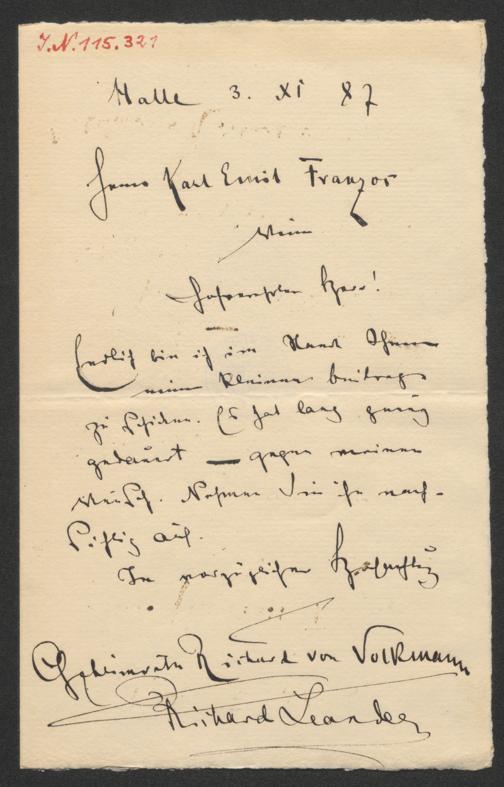 I.N. 115.321
Halle 3. XI 87
Herrn Karl Emil Franzos
Wien
Hochverehrter Herr!
Endlich bin ich im Stand Ihnen
einen kleinen Beitrag
zu schicken. Es hat lang genug
gedauert — gegen meinen
Wunsch. Nehmen Sie ihn nach-
sichtig auf.
In vorzüglicher Hochachtung
Geheimrath Richard von Volkmann
Richard Leander